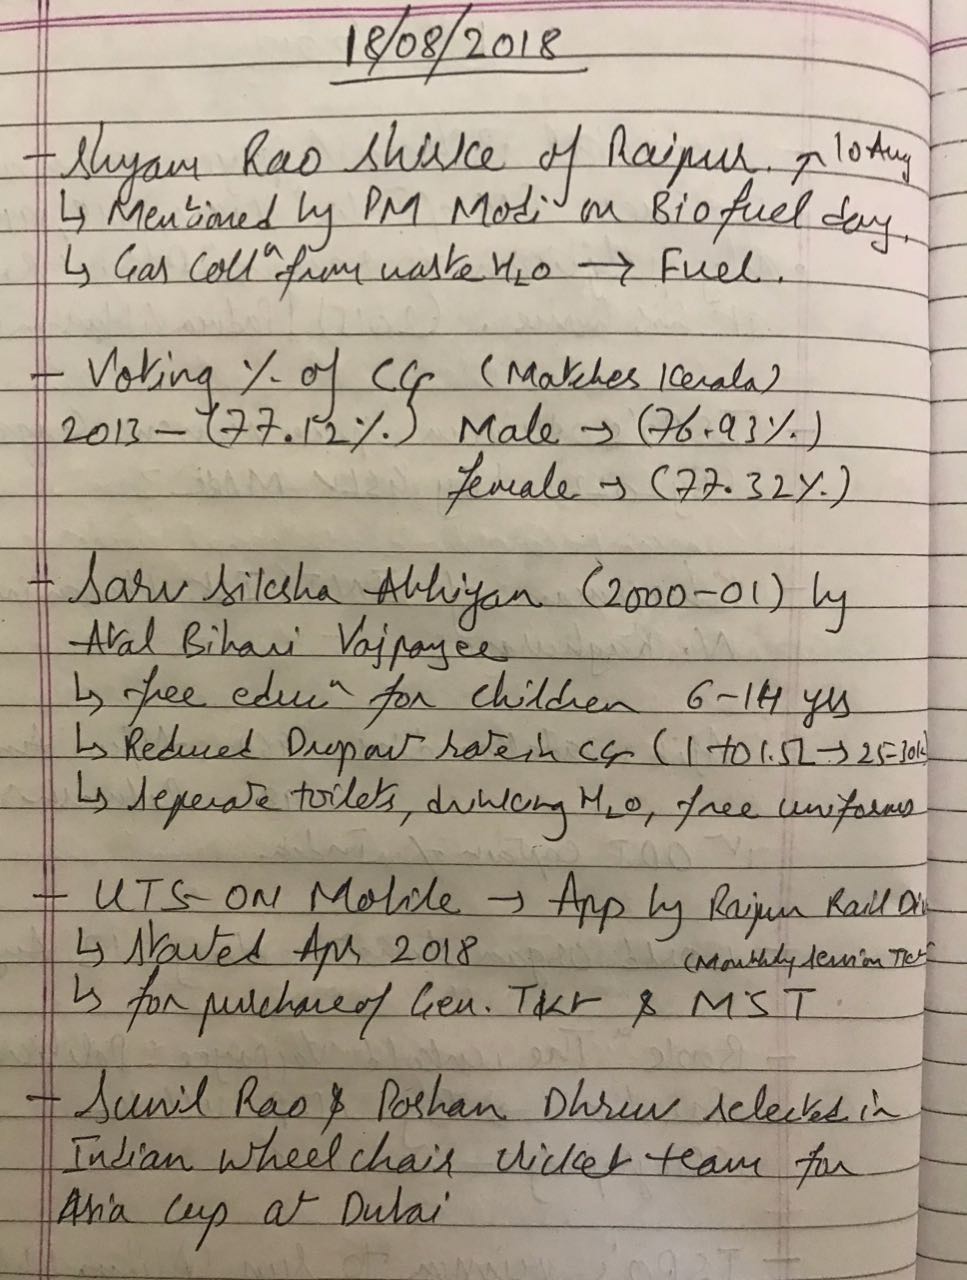 18/08/2018
- Shyam Rao Shirke of Raipur. ↗ 10 Aug
↳ Mentioned by PM Modi on Biofuel day.
↳ Gas Collⁿ from waste H₂O → Fuel.
- Voting % of CG (Matches Kerala)
2013 - (77.12%.) Male → (76.93%.)
female → (77.32%.)
- Sarv Siksha Abhiyan (2000-01) by
Atal Bihari Vajpayee
↳ free educⁿ for children 6-14 yrs
↳ Reduced Dropout rate in CG (1 to 1.5L → 25-30k
↳ Seperate toilets, drinking H₂O, free uniforms
- UTS-ON Mobile → App by Raipur Rail Div
↳ Started Apr 2018 (Monthly Session Tkt
↳ for purchase of Gen. Tkt & MST
- Sunil Rao & Poshan Dhruw selected in
Indian wheelchair cricket team for
Asia cup at Dubai